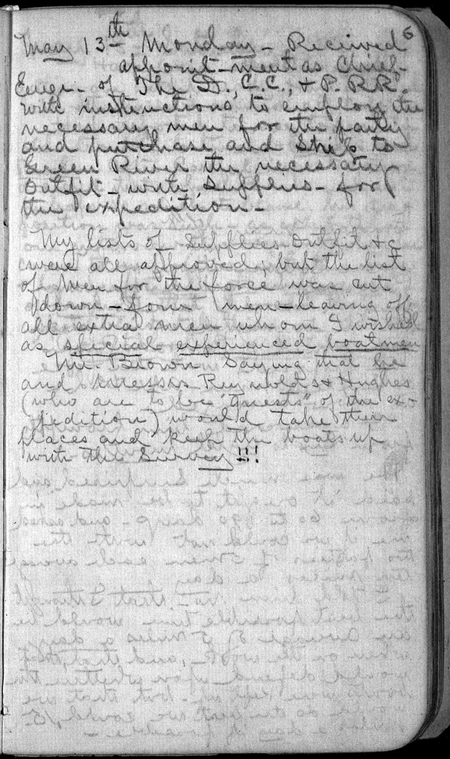 6
May 13th Monday - Received
appoint-ment as Chief-
Engr. of The D., C.C., & P. R.R.
with instructions to employ the
necessary men for the party
and purchase and Ship to
Green River the necessary
Outfit - with Supplies - for
the expedition -
My lists of Supplies Outfit &c
were all approved, but the list
of Men for the force was cut
down - four men - leaving off
all extra men whom I wished
as special experienced boatmen
Mr. Brown Saying that he
and Messrs Reynolds & Hughes
(who are to be "Guests" of the ex-
pedition) would take their
places and keep the boats up
with the Survey !!!